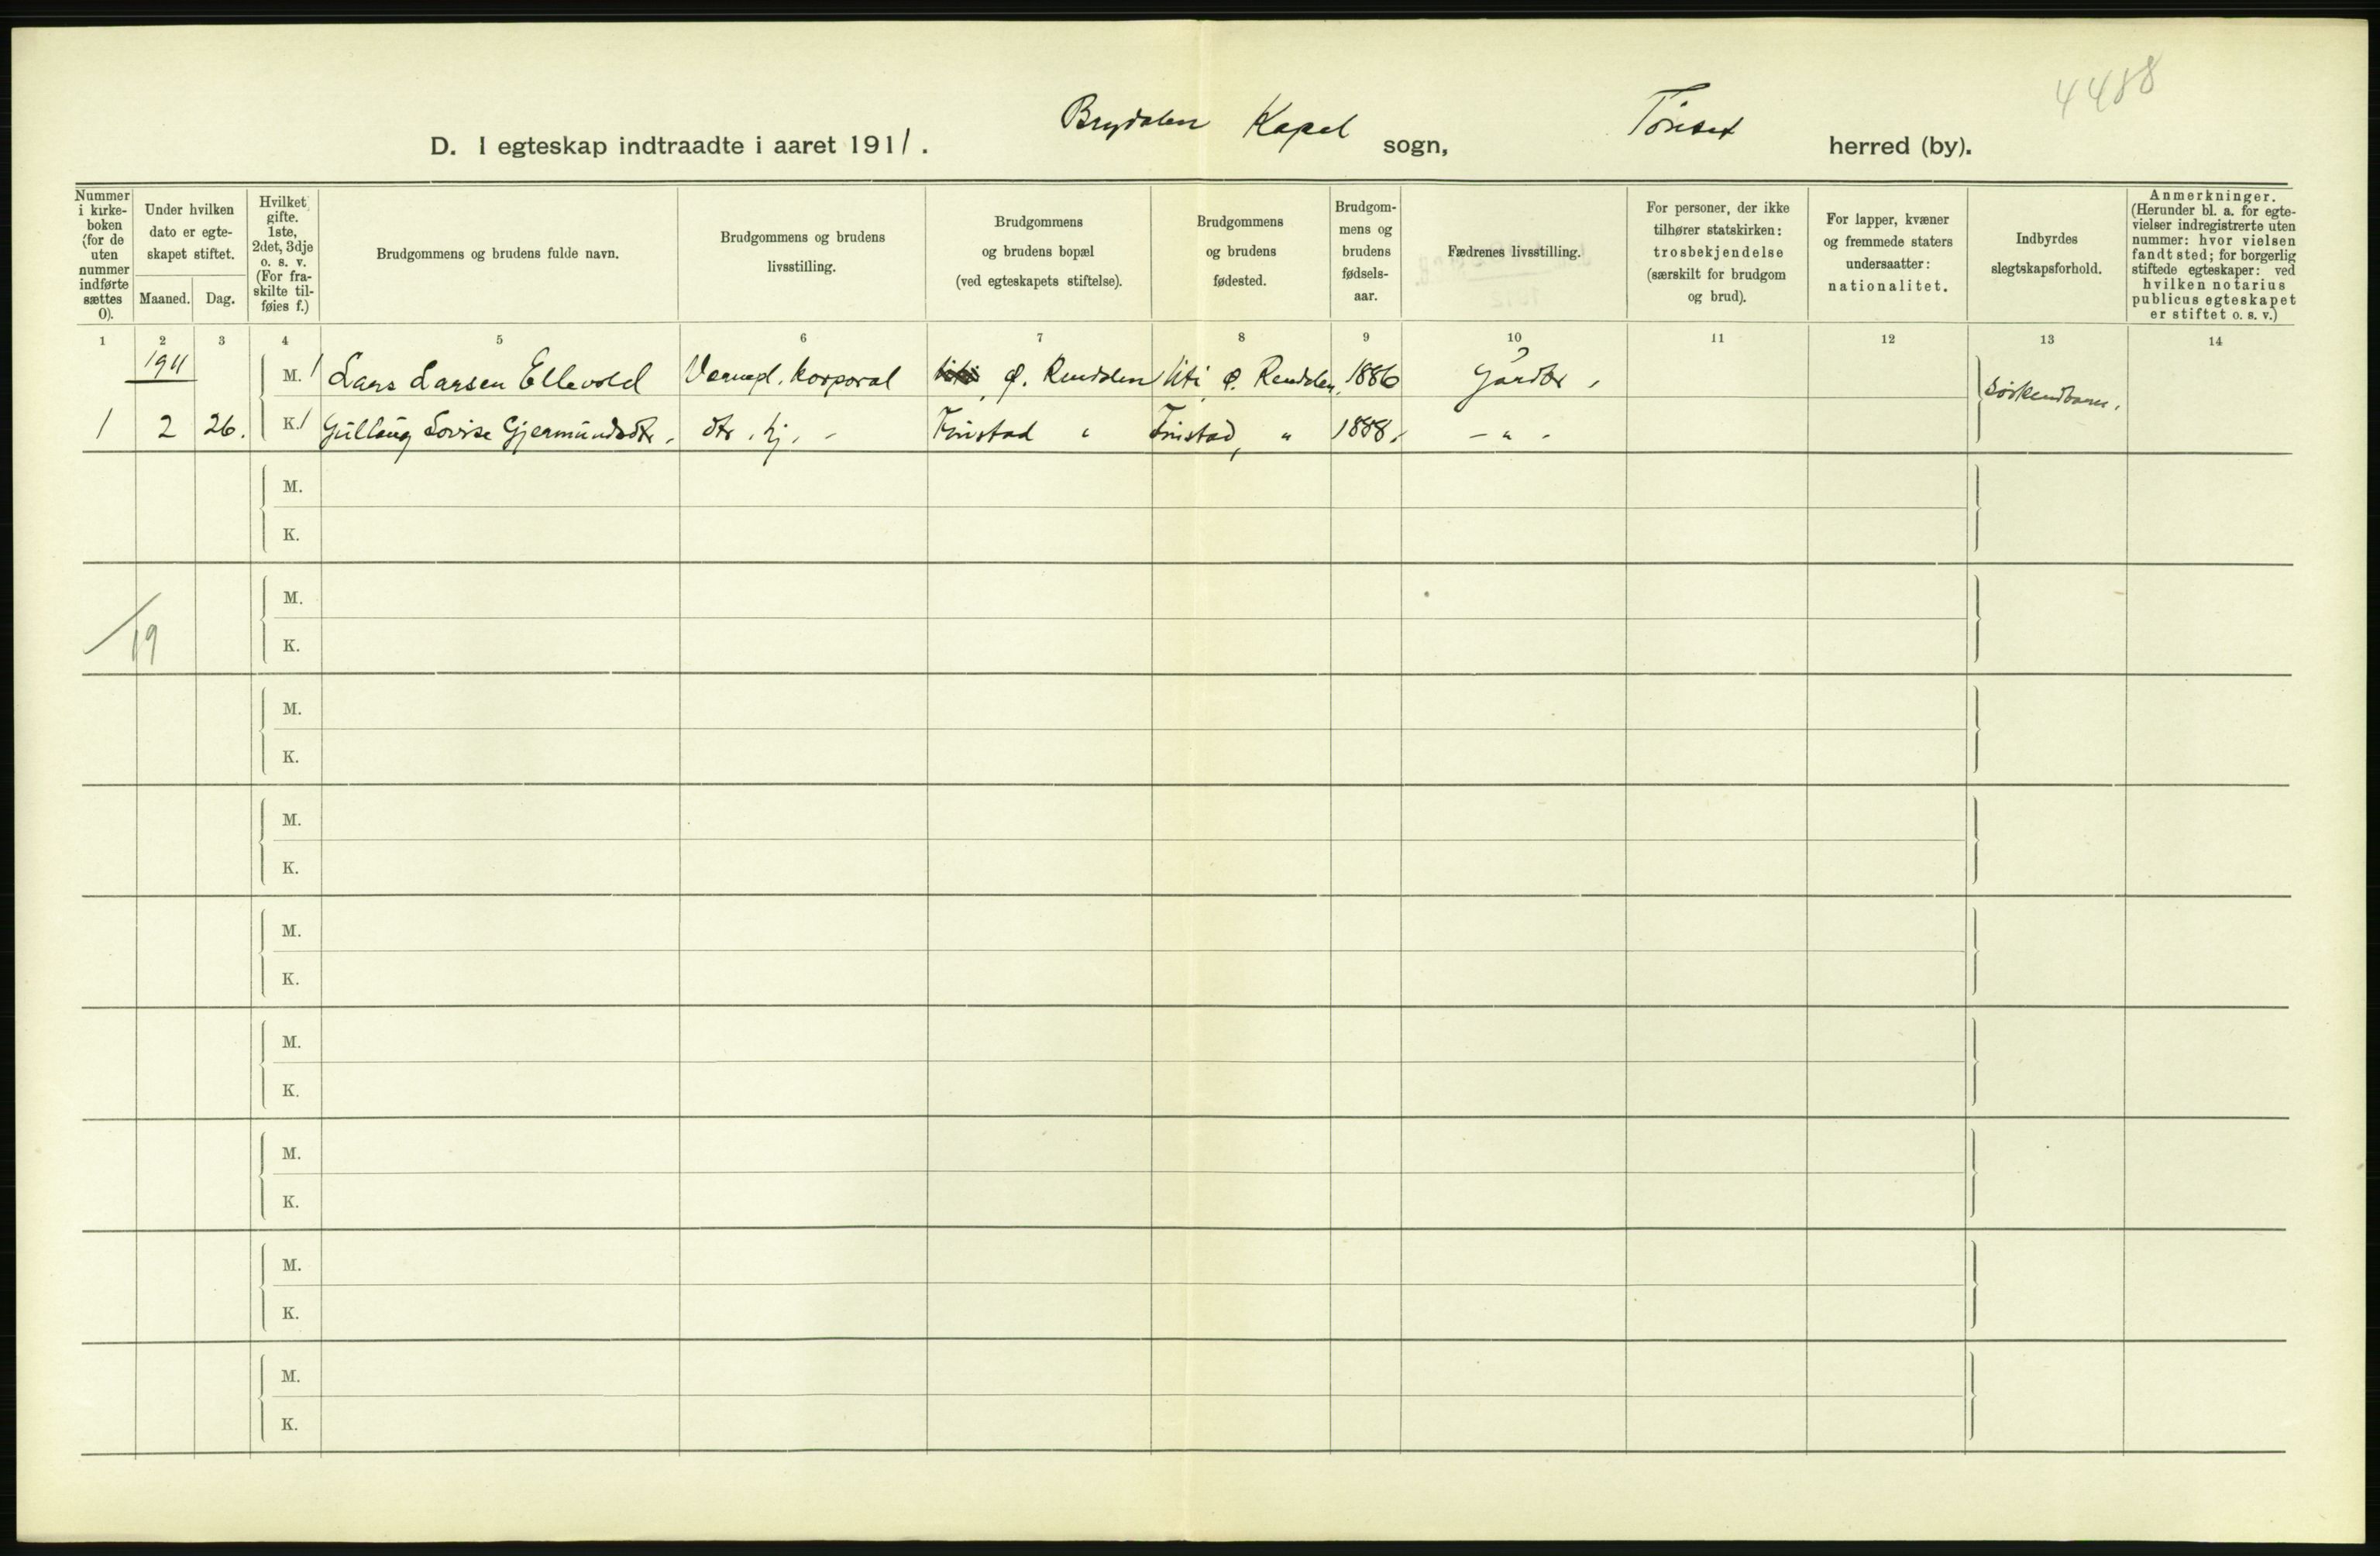 4488
D. I egteskap indtraadte i aaret 1911. Brydalen Kapel sogn, Tönset herred (by).
Nummer i kirkeboken (for de uten nummer indførte sættes 0).
Under hvilken dato er egteskapet stiftet.
Maaned. Dag.
Hvilket gifte. 1ste, 2det, 3dje o. s. v. (For fraskilte tilføies f.)
Brudgommens og brudens fulde navn.
Brudgommens og brudens livsstilling.
Brudgommens og brudens bopæl (ved egteskapets stiftelse).
Brudgommens og brudens fødested.
Brudgommens og brudens fødselsaar.
Fædrenes livsstilling.
For personer, der ikke tilhører statskirken: trosbekjendelse (særskilt for brudgom og brud).
For lapper, kvæner og fremmede staters undersaatter: nationalitet.
Indbyrdes slegtskapsforhold.
Anmerkninger. (Herunder bl. a. for egtevielser indregistrerte uten nummer: hvor vielsen fandt sted; for borgerlig stiftede egteskaper: ved hvilken notarius publicus egteskapet er stiftet o. s. v.)
1 2 3 4 5 6 7 8 9 10 11 12 13 14
1911 M. 1 Lars Larsen Ellevold Vernepl. Korporal Ø. Rendalen Uti Ø. Rendalen 1886 Gårdbr. Söskendbarn.
1 2 26. K. 1 Gullaug Lovise Gjermundsdtr. dtr. hj. - Finstad " Finstad, " 1888. - " -
M.
K.
M.
19
K.
M.
K.
M.
K.
M.
K.
M.
K.
M.
K.
M.
K.
M.
K.